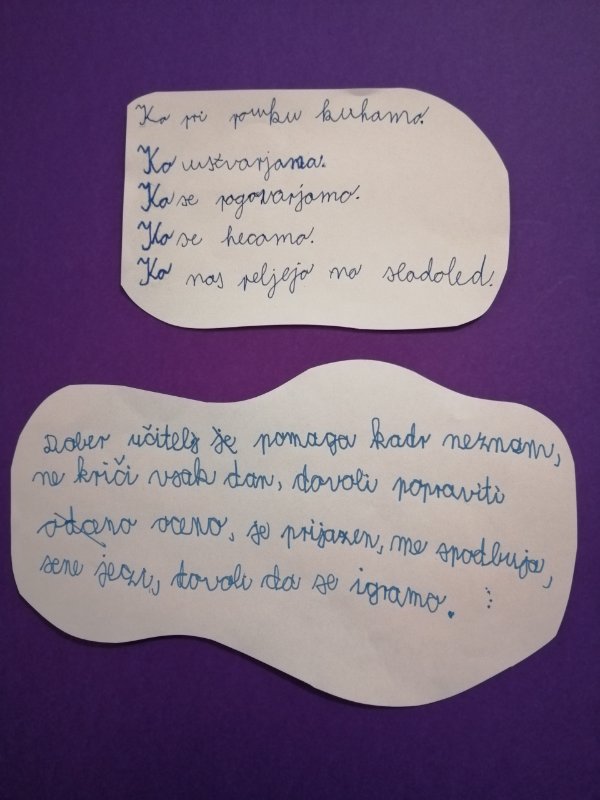 Ko pri pouku kuhamo.
Ko ustvarjamo.
Ko se pogovarjamo.
Ko se hecamo.
Ko nas peljejo na sladoled.
Dober učitelj je pomaga kadr neznam,
ne kriči vsak dan, dovoli popraviti
oceno, je prijazen, me spodbuja,
se ne jezi, dovoli da se igramo. :